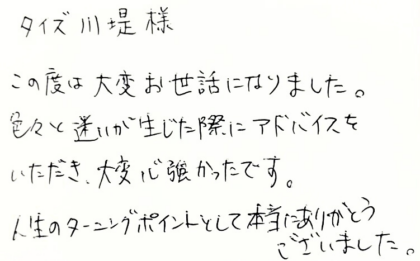 タイズ 川堤 様
この度は大変お世話になりました。
色々と迷いが生じた際にアドバイスを
いただき、大変心強かったです。
人生のターニングポイントとして本当にありがとう
ございました。